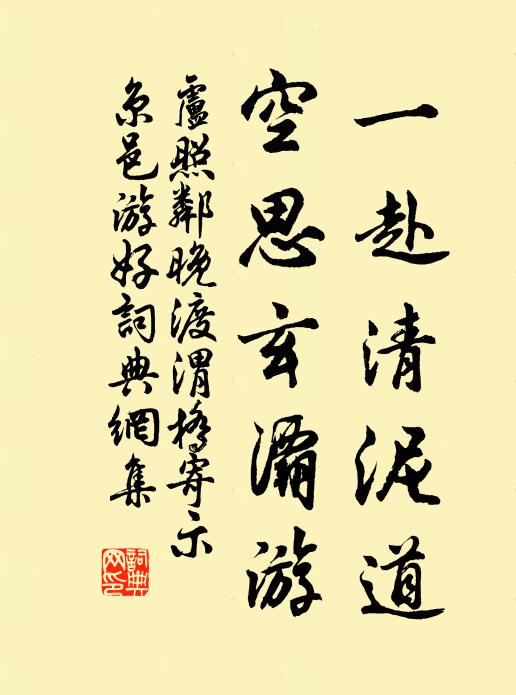 一赴清泥道
空思玄灞游
盧照鄰晚渡渭橋寄示
京邑游好詞典網集
詞典网印